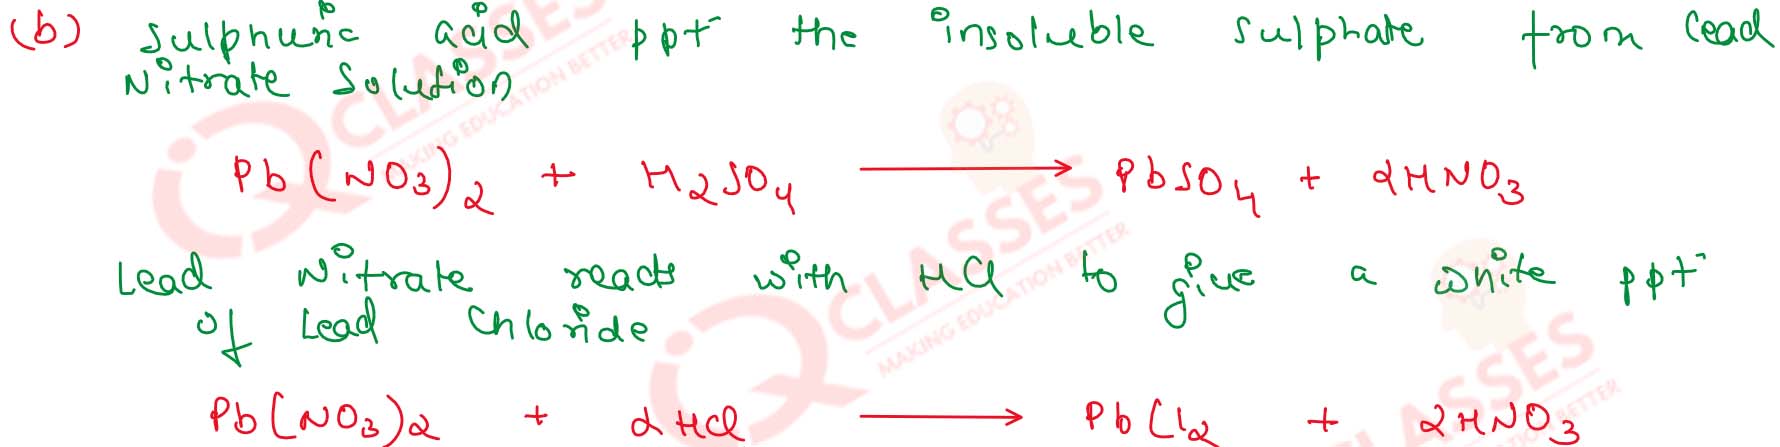 (b) Sulphuric acid ppt the insoluble sulphate from lead
Nitrate Solution
Pb(NO3)2 + H2SO4 → PbSO4 + 2HNO3
Lead Nitrate reacts with HCl to give a white ppt
of Lead Chloride
Pb(NO3)2 + 2HCl → PbCl2 + 2HNO3
iQ CLASSES
MAKING EDUCATION BETTER
iQ CLASSES
MAKING EDUCATION BETTER
CLASSES
BETTER